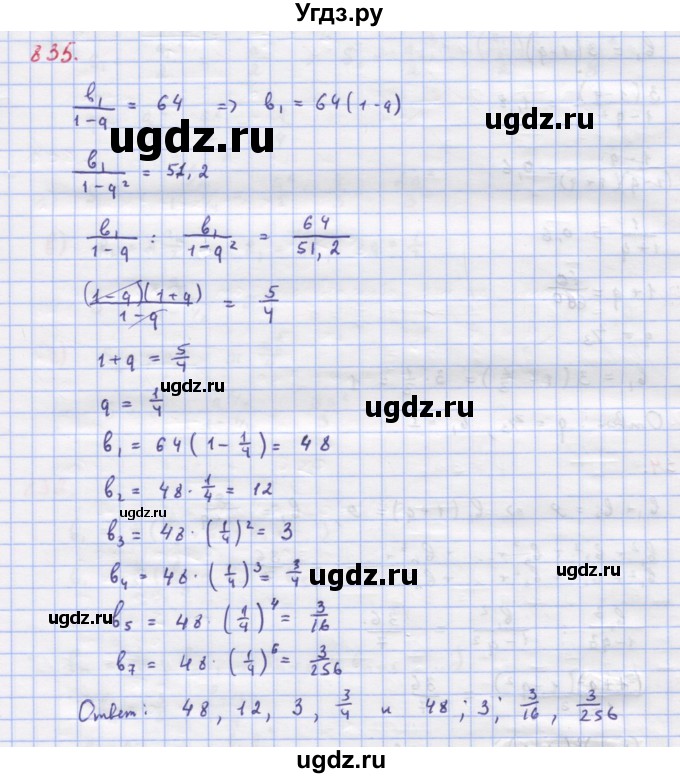 Угдз.ру
835.
b₁/(1-q) = 64 => b₁ = 64(1-q)
ugdz.ru
ugdz.ru
b₁/(1-q²) = 51,2
b₁/(1-q) : b₁/(1-q²) = 64/51,2
ugdz.ru
((1-q)(1+q))/(1-q) = 5/4
1+q = 5/4
ugdz.ru
q = 1/4
ugdz.ru
b₁ = 64(1-1/4) = 48
b₂ = 48·1/4 = 12
ugdz.ru
b₃ = 48·(1/4)² = 3
b₄ = 48·(1/4)³ = 3/4
ugdz.ru
ugdz.ru
b₅ = 48·(1/4)⁴ = 3/16
ugdz.ru
b₇ = 48·(1/4)⁶ = 3/256
Ответ: 48, 12, 3, 3/4 и 48; 3; 3/16, 3/256
ugdz.ru
ugdz.ru